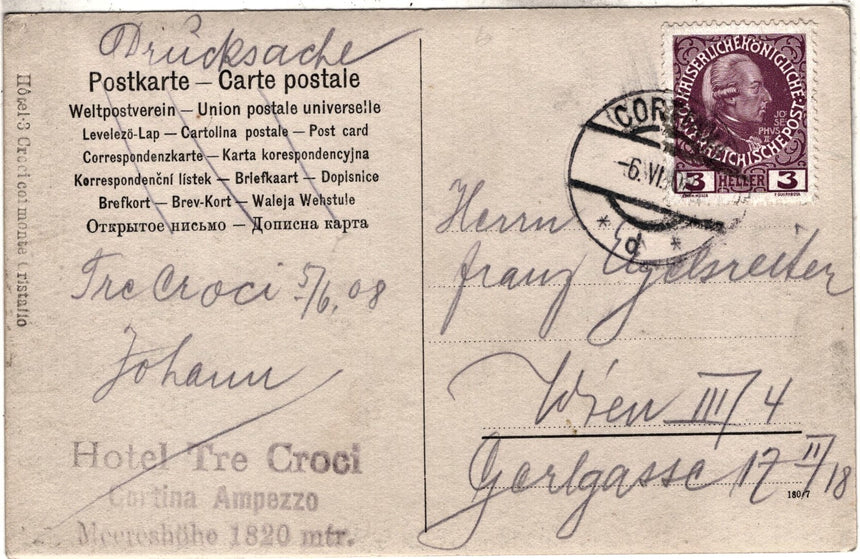 Drucksache
Postkarte — Carte postale
Weltpostverein — Union postale universelle
Levelező-Lap — Cartolina postale — Post card
Correspondenzkarte — Karta korespondencyjna
Korrespondenční lístek — Briefkaart — Dopisnice
Brefkort — Brev-Kort — Waleja Wehstule
Открытое письмо — Дописна карта
Tre Croci 5/6.08
Johann
Hotel Tre Croci
Cortina Ampezzo
Meereshöhe 1820 mtr.
Hôtel-3 Croci col monte Cristallo
KAISERLICHE KÖNIGLICHE
ÖSTERREICHISCHE POST
JO
SE
PHVS
II
3 HELLER 3
-6.VI.
d
Herrn
Franz
Wien III/4
Gerlgasse 17 II/18
180/7